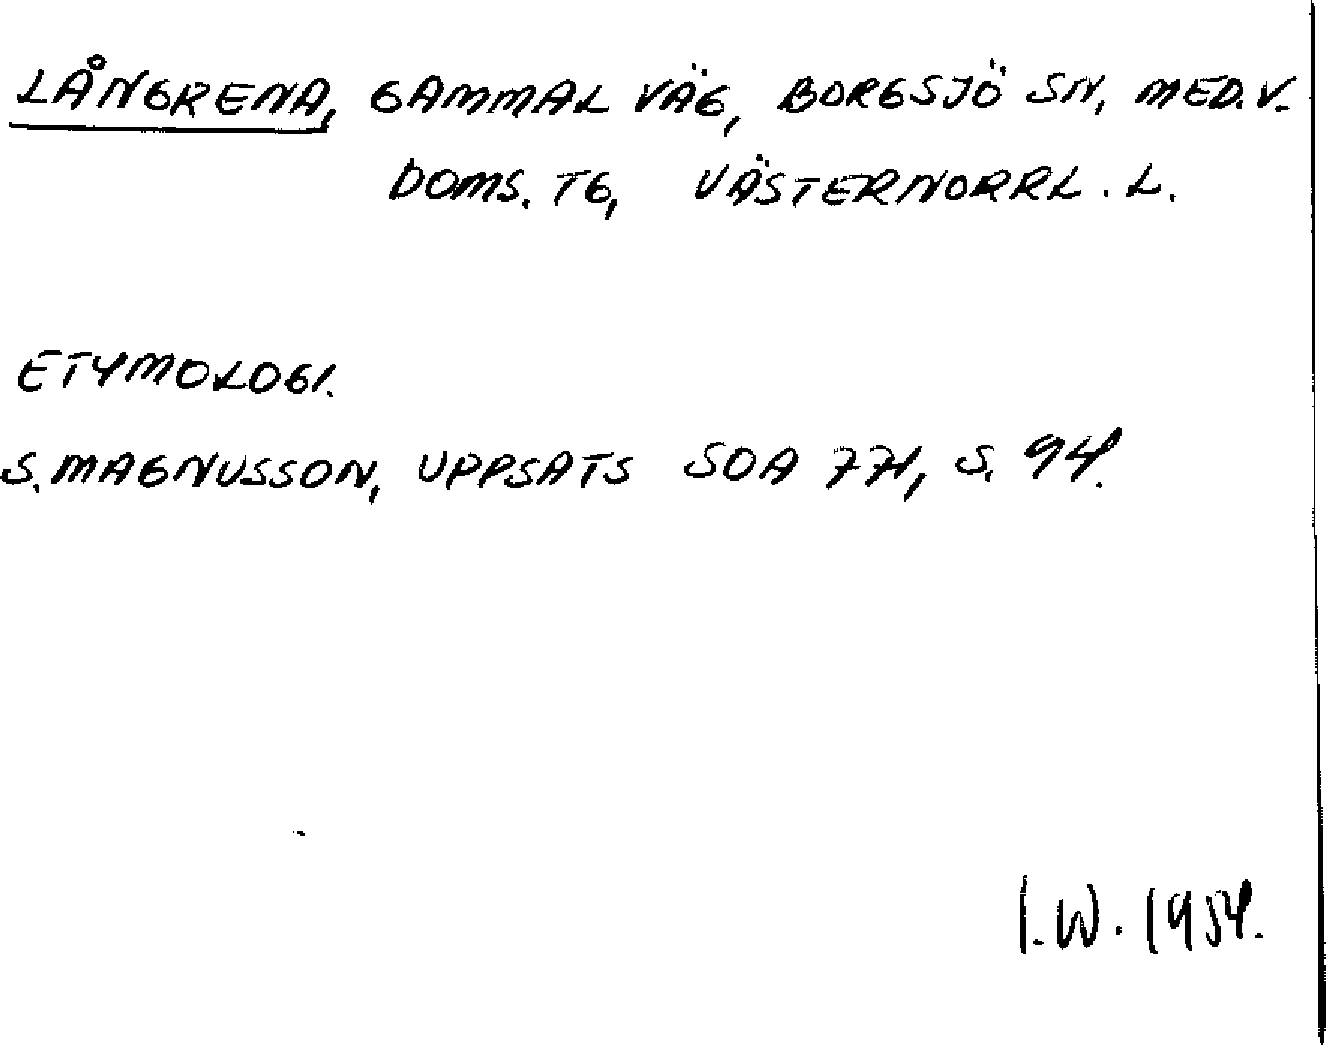 LÅNGRENA, GAMMAL VÄG, BORGSJÖ SN, MED.V.
DOMS. TG, VÄSTERNORRL. L.
ETYMOLOGI.
S. MAGNUSSON, UPPSATS SOA 771, S. 94.
I.W. 1954.